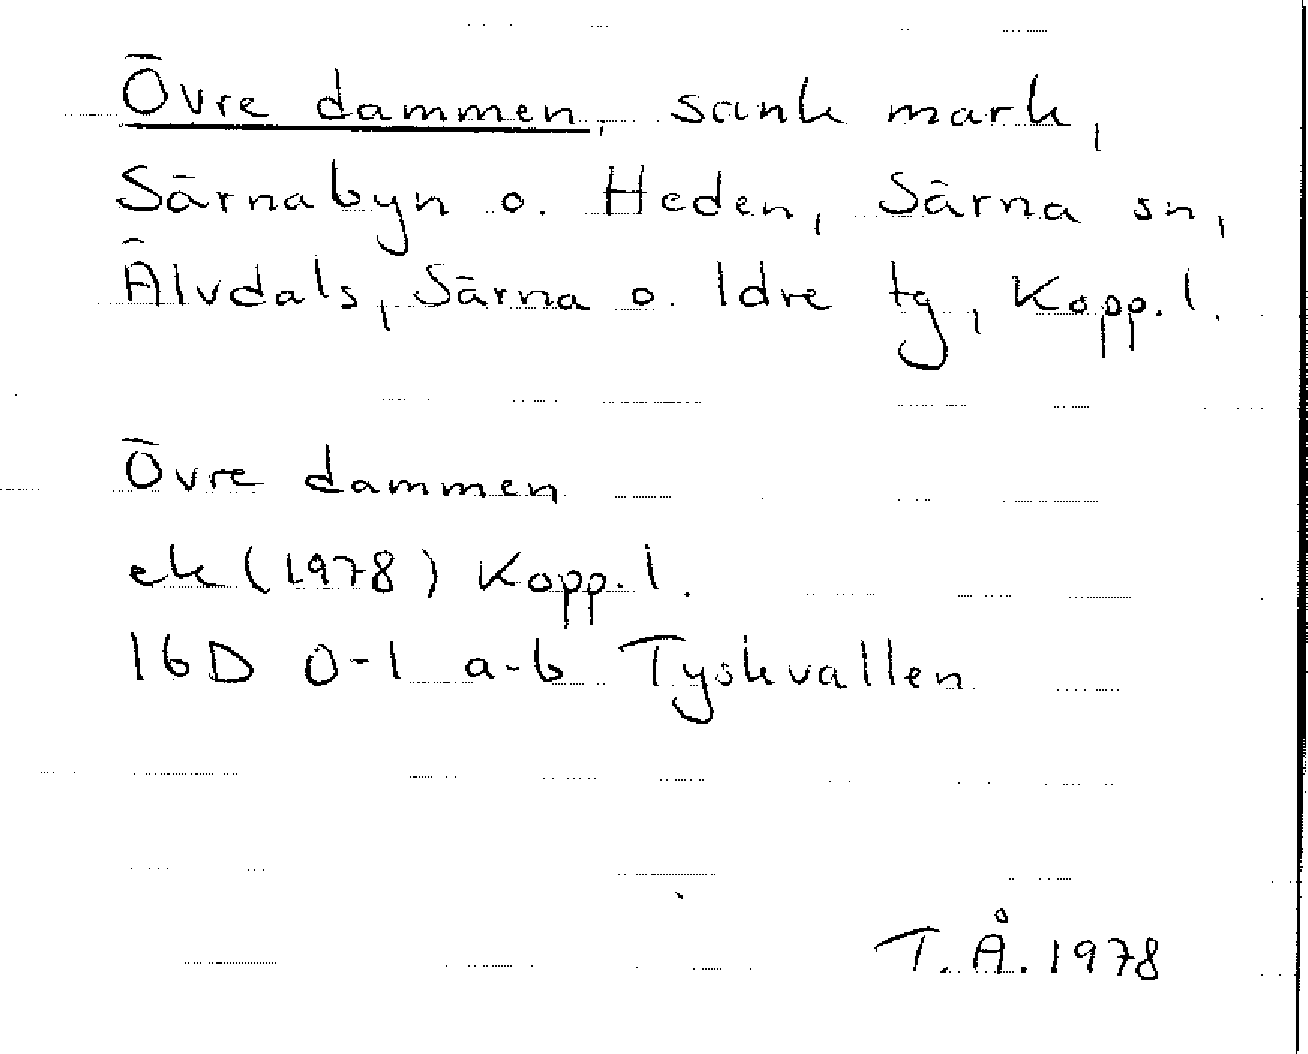 Övre dammen, sank mark,
Särnabyn o. Heden, Särna sn,
Älvdals, Särna o. Idre tg, Kopp. l.
Övre dammen
ek (1978) Kopp. l.
16D 0-1 a-b Tyskvallen
T.Å. 1978